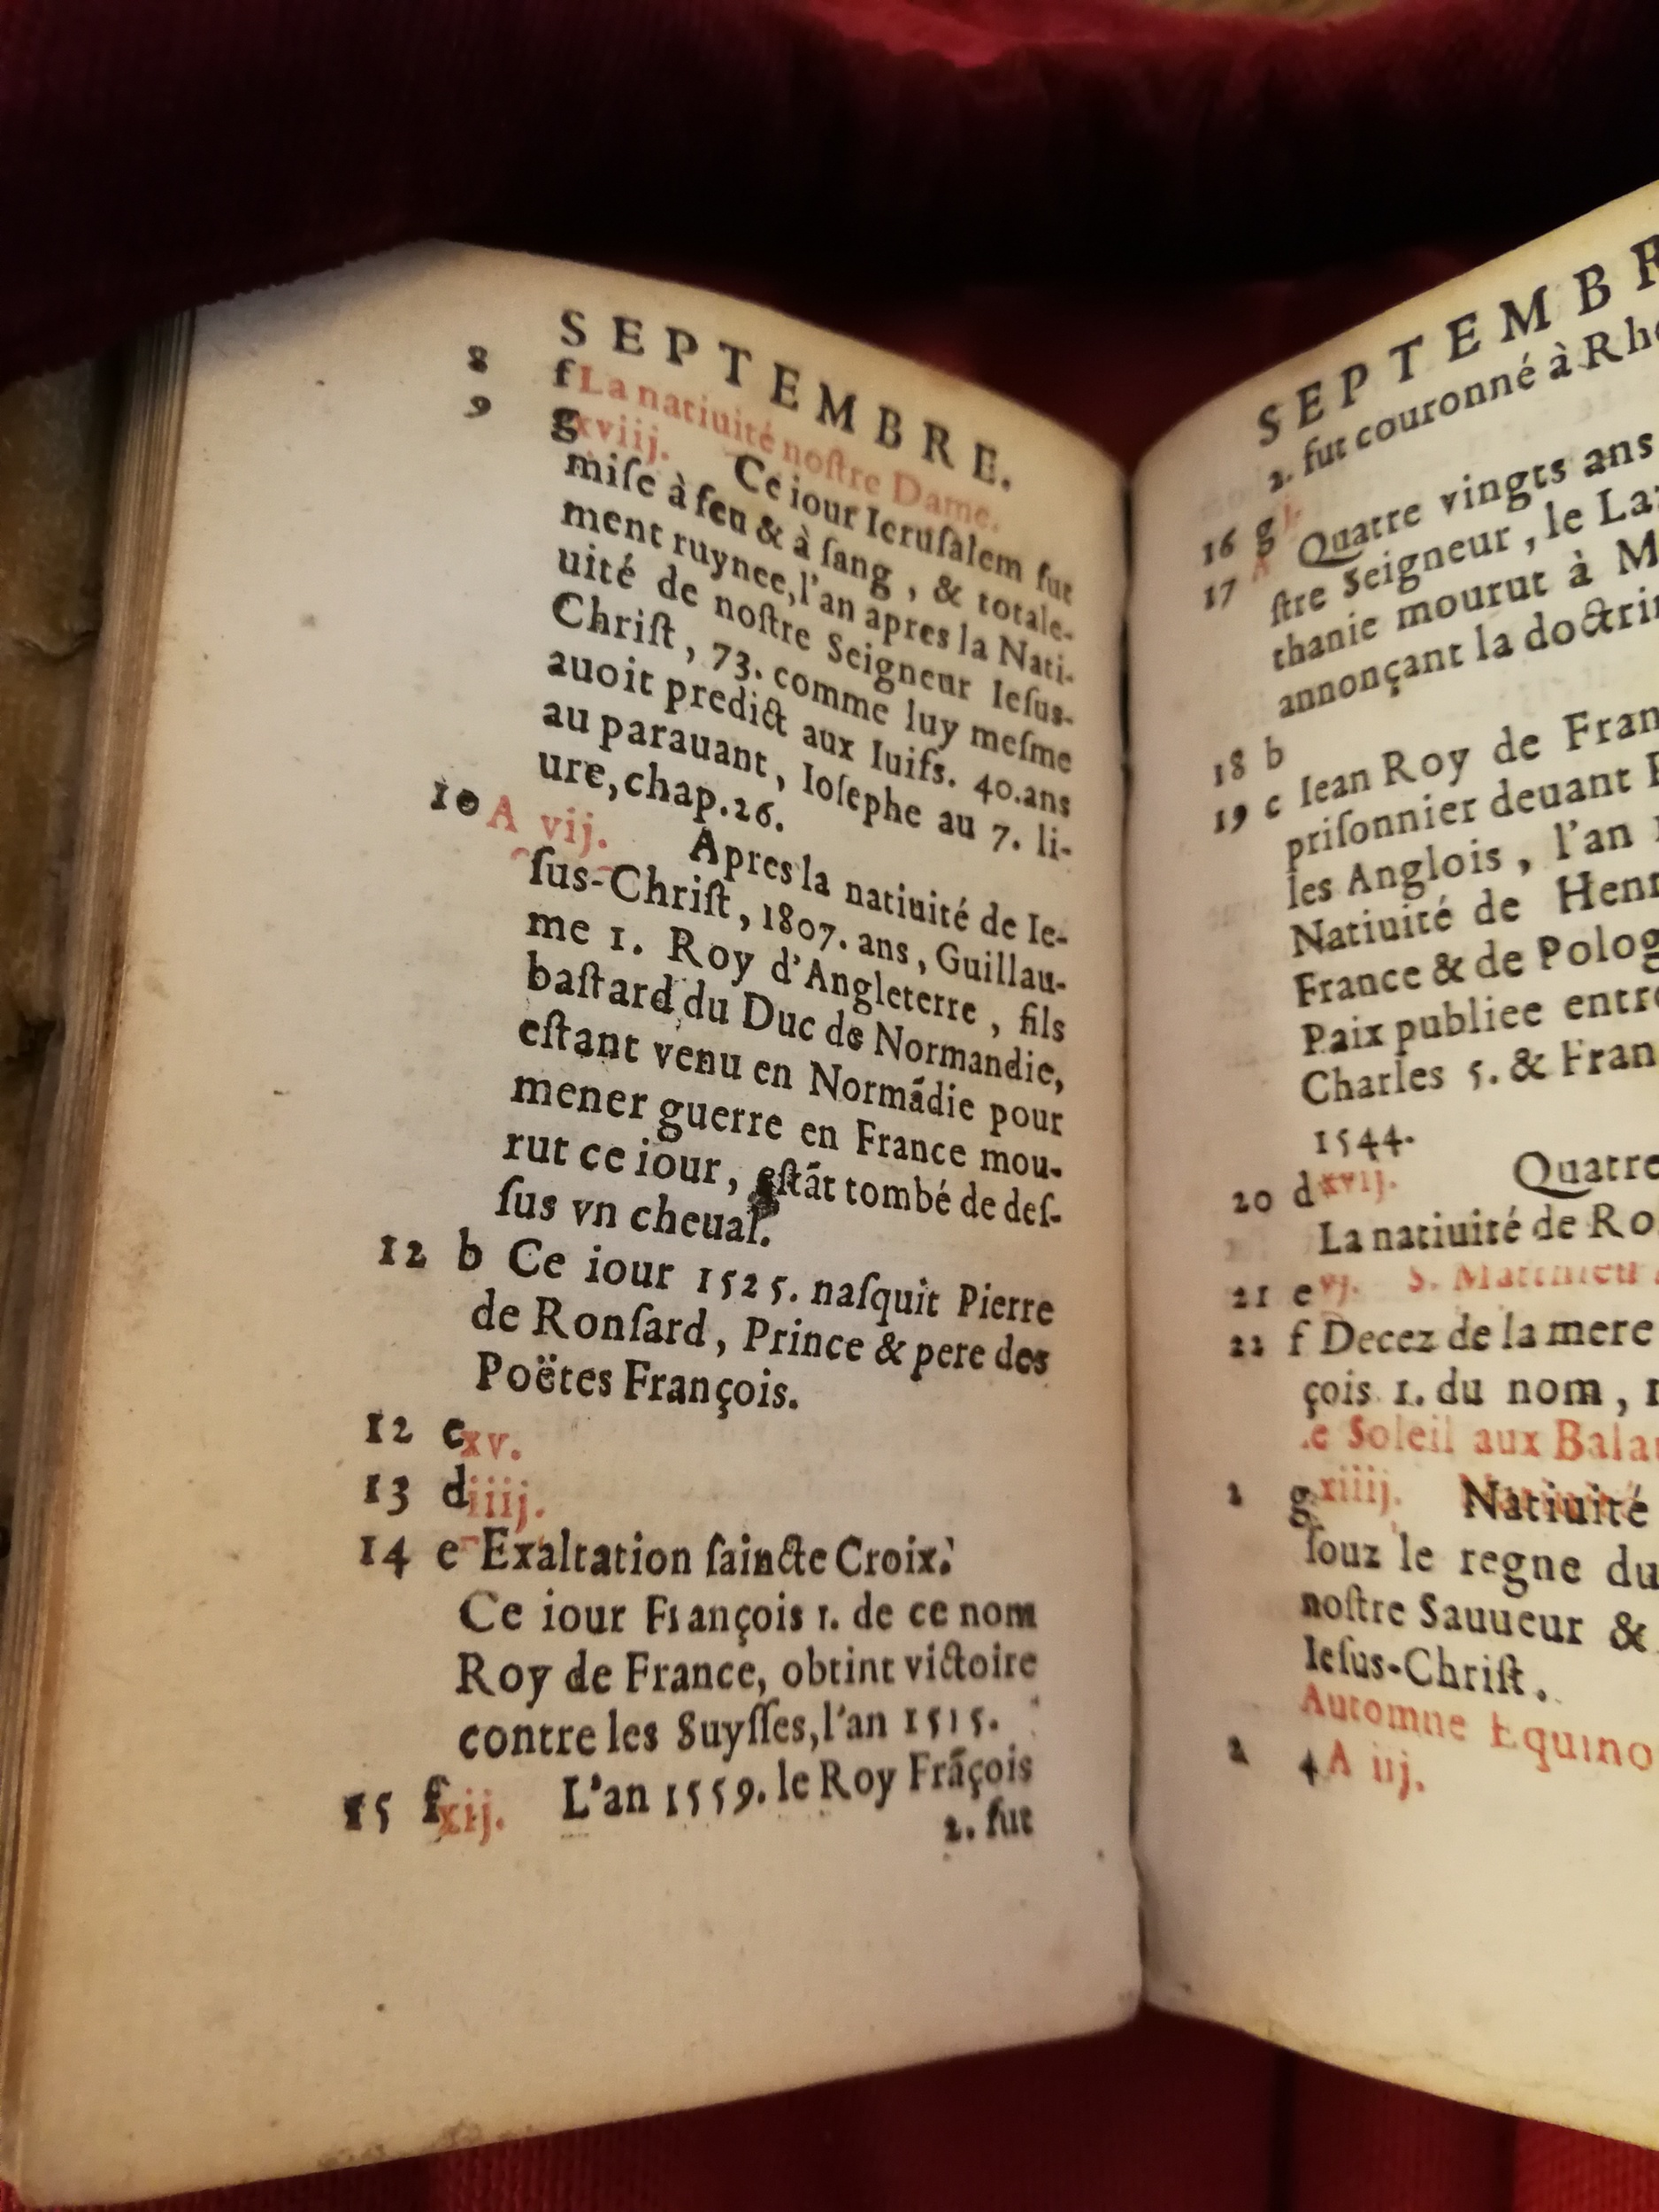 SEPTEMBRE.
8 f La natiuité noſtre Dame.
9 g xviij. Ce iour Ieruſalem fut
miſe à feu & à ſang, & totale-
ment ruynee, l'an apres la Nati-
uité de noſtre Seigneur Ieſus-
Chriſt, 73. comme luy meſme
auoit predict aux Iuifs. 40. ans
au parauant, Ioſephe au 7. li-
ure, chap. 26.
10 A vij. Apres la natiuité de Ie-
ſus-Chriſt, 1807. ans, Guillau-
me 1. Roy d'Angleterre, fils
baſtard du Duc de Normandie,
eſtant venu en Normãdie pour
mener guerre en France mou-
rut ce iour, eſtãt tombé de deſ-
ſus vn cheual.
12 b Ce iour 1525. naſquit Pierre
de Ronſard, Prince & pere des
Poëtes François.
12 c xv.
13 d iiij.
14 e Exaltation ſaincte Croix.
Ce iour François 1. de ce nom
Roy de France, obtint victoire
contre les Suyſſes, l'an 1515.
15 f xij. L'an 1559. le Roy Frãçois
2. fut
SEPTEMBR
2. fut couronné à Rh
16 g j.
17 A Quatre vingts ans
ſtre Seigneur, le La
thanie mourut à M
annonçant la doctri
18 b
19 c Iean Roy de Fran
priſonnier deuant
les Anglois, l'an
Natiuité de Hen
France & de Polog
Paix publiee entr
Charles 5. & Fran
1544.
20 d xvij. Quatre
La natiuité de Ro
21 e vj. S. Matthieu
22 f Decez de la mere
çois 1. du nom,
le Soleil aux Bala
2 g xiiij. Natiuité
ſouz le regne du
noſtre Sauueur &
Ieſus-Chriſt.
Automne Equino
2 4 A iij.